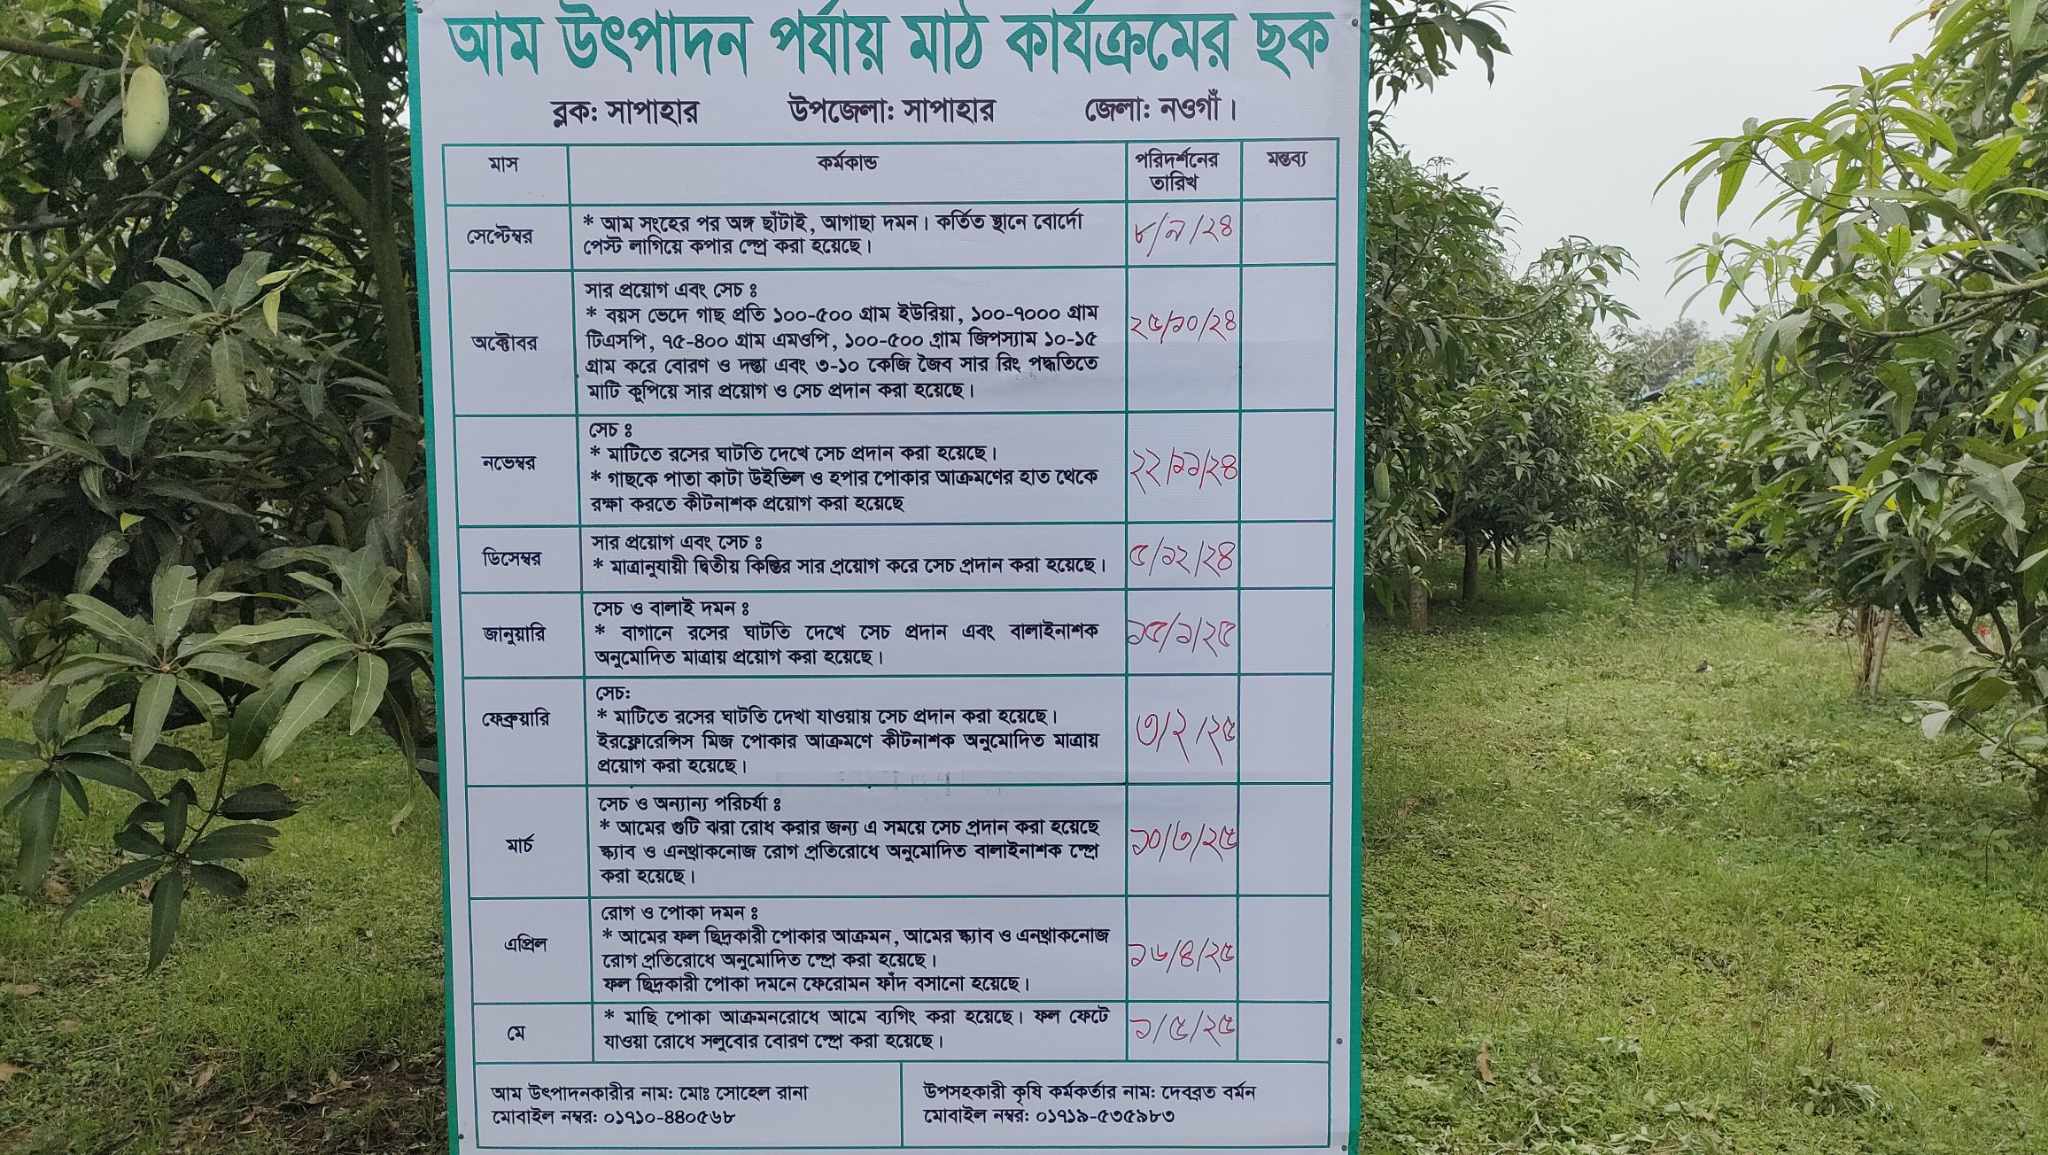 আম উৎপাদন পর্যায় মাঠ কার্যক্রমের ছক
ব্লক: সাপাহার উপজেলা: সাপাহার জেলা: নওগাঁ।
মাস কর্মকান্ড পরিদর্শনের তারিখ মন্তব্য
সেপ্টেম্বর
* আম সংহের পর অঙ্গ ছাঁটাই, আগাছা দমন। কর্তিত স্থানে বোর্দো
পেস্ট লাগিয়ে কপার স্প্রে করা হয়েছে।
৮/৯/২৪
অক্টোবর
সার প্রয়োগ এবং সেচ ঃ
* বয়স ভেদে গাছ প্রতি ১০০-৫০০ গ্রাম ইউরিয়া, ১০০-৭০০০ গ্রাম
টিএসপি, ৭৫-৪০০ গ্রাম এমওপি, ১০০-৫০০ গ্রাম জিপস্যাম ১০-১৫
গ্রাম করে বোরণ ও দস্তা এবং ৩-১০ কেজি জৈব সার রিং পদ্ধতিতে
মাটি কুপিয়ে সার প্রয়োগ ও সেচ প্রদান করা হয়েছে।
২৫/১০/২৪
নভেম্বর
সেচ ঃ
* মাটিতে রসের ঘাটতি দেখে সেচ প্রদান করা হয়েছে।
* গাছকে পাতা কাটা উইভিল ও হপার পোকার আক্রমণের হাত থেকে
রক্ষা করতে কীটনাশক প্রয়োগ করা হয়েছে
২২/১১/২৪
ডিসেম্বর
সার প্রয়োগ এবং সেচ ঃ
* মাত্রানুযায়ী দ্বিতীয় কিস্তির সার প্রয়োগ করে সেচ প্রদান করা হয়েছে।
৫/১২/২৪
জানুয়ারি
সেচ ও বালাই দমন ঃ
* বাগানে রসের ঘাটতি দেখে সেচ প্রদান এবং বালাইনাশক
অনুমোদিত মাত্রায় প্রয়োগ করা হয়েছে।
১৫/১/২৫
ফেব্রুয়ারি
সেচ:
* মাটিতে রসের ঘাটতি দেখা যাওয়ায় সেচ প্রদান করা হয়েছে।
ইরফ্লোরেন্সিস মিজ পোকার আক্রমণে কীটনাশক অনুমোদিত মাত্রায়
প্রয়োগ করা হয়েছে।
৩/২/২৫
মার্চ
সেচ ও অন্যান্য পরিচর্যা ঃ
* আমের গুটি ঝরা রোধ করার জন্য এ সময়ে সেচ প্রদান করা হয়েছে
স্ক্যাব ও এনথ্রাকনোজ রোগ প্রতিরোধে অনুমোদিত বালাইনাশক স্প্রে
করা হয়েছে।
১০/৩/২৫
এপ্রিল
রোগ ও পোকা দমন ঃ
* আমের ফল ছিদ্রকারী পোকার আক্রমন, আমের স্ক্যাব ও এনথ্রাকনোজ
রোগ প্রতিরোধে অনুমোদিত স্প্রে করা হয়েছে।
ফল ছিদ্রকারী পোকা দমনে ফেরোমন ফাঁদ বসানো হয়েছে।
১৬/৪/২৫
মে
* মাছি পোকা আক্রমনরোধে আমে ব্যগিং করা হয়েছে। ফল ফেটে
যাওয়া রোধে সলুবোর বোরণ স্প্রে করা হয়েছে।
১/৫/২৫
আম উৎপাদনকারীর নাম: মোঃ সোহেল রানা
মোবাইল নম্বর: ০১৭১০-৪৪০৫৬৮
উপসহকারী কৃষি কর্মকর্তার নাম: দেবব্রত বর্মন
মোবাইল নম্বর: ০১৭১৯-৫৩৫৯৮৩